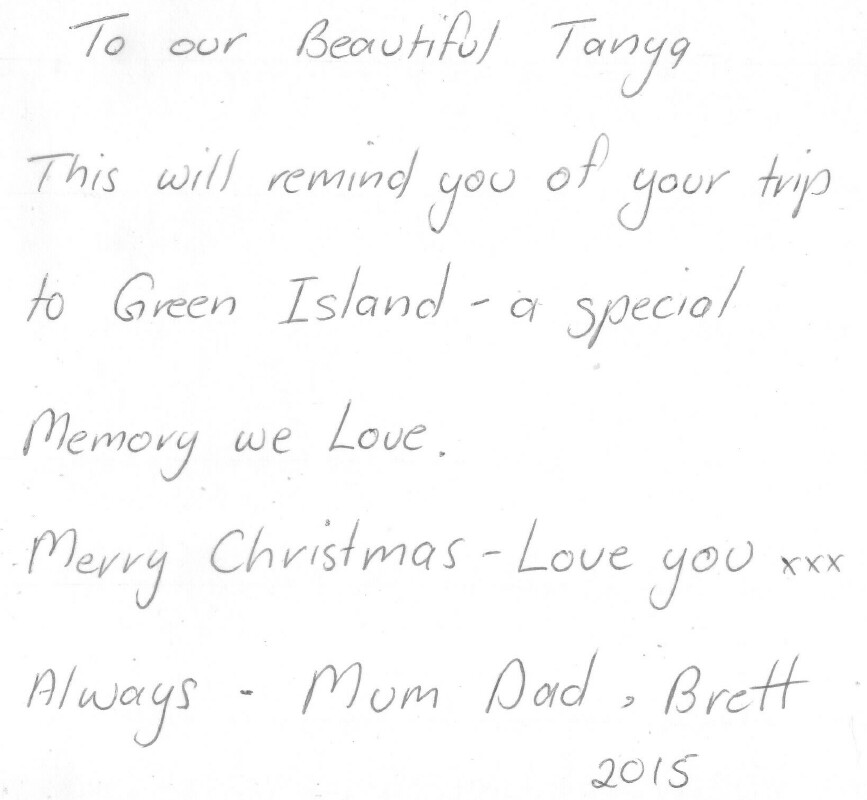 To our Beautiful Tanya
This will remind you of your trip
to Green Island - a special
Memory we Love.
Merry Christmas - Love you xxx
Always - Mum Dad , Brett
2015